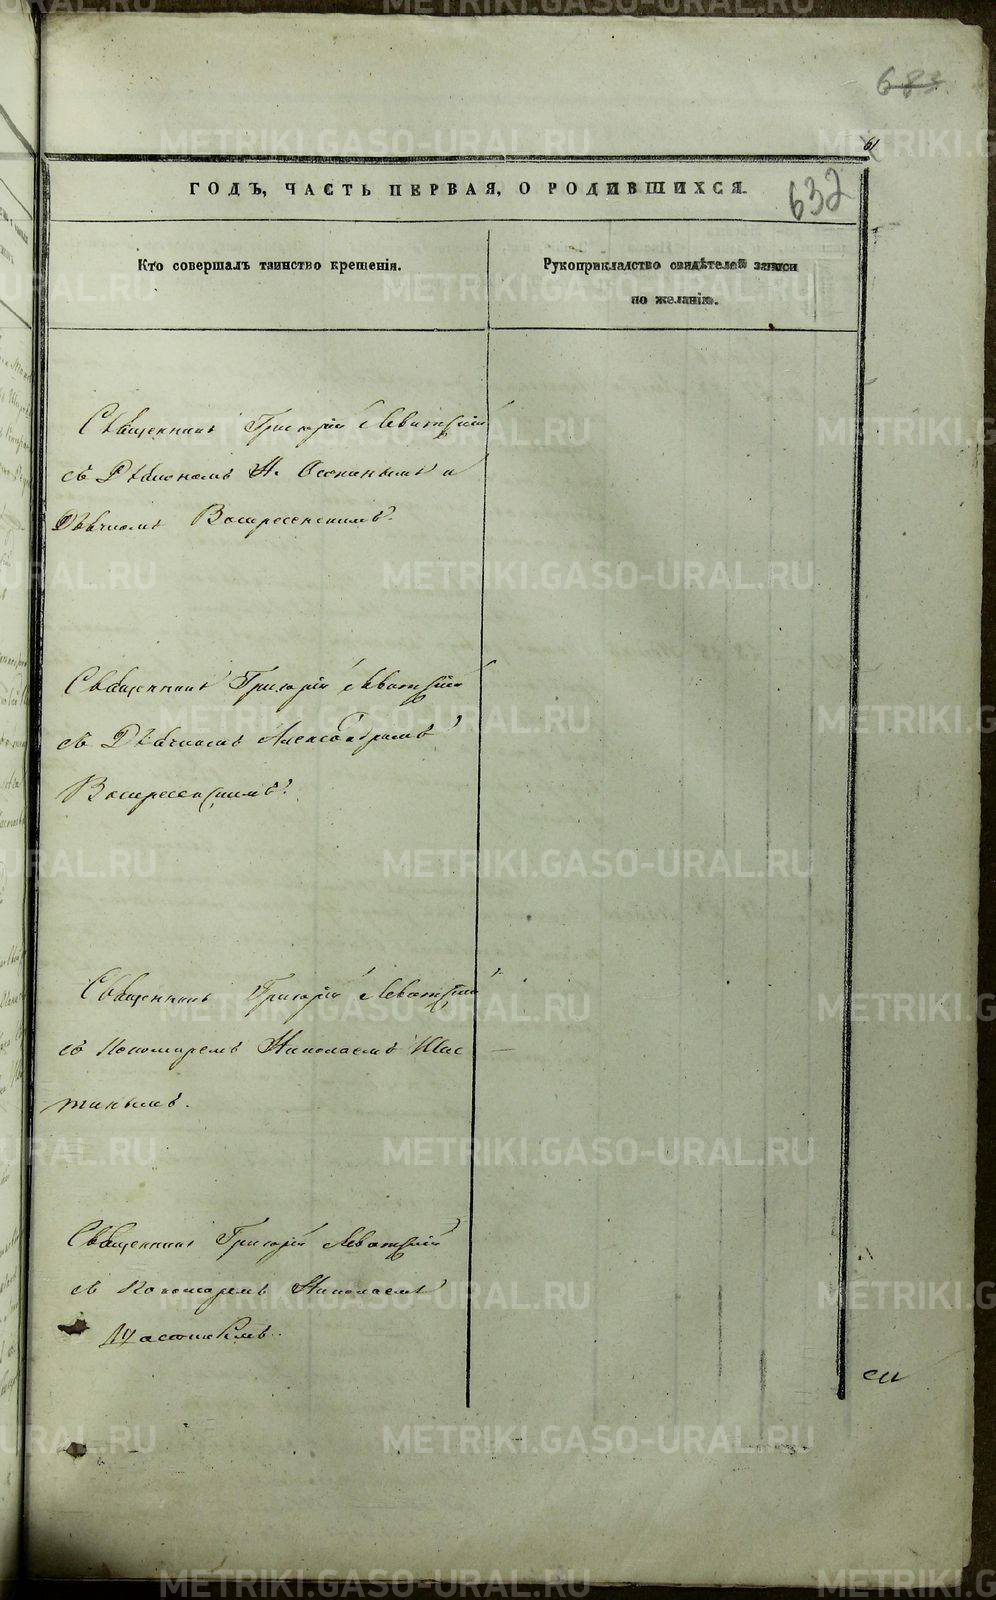 683
61
ГОДЪ, ЧАСТЬ ПЕРВАЯ, О РОДИВШИХСЯ.
632
Кто совершалъ таинство крещенія.
Рукоприкладство свидѣтелей записи
по желанію.
Священникъ Григорій Левитскій
съ Діакономъ Н. Осекинымъ и
Дьячкомъ Воскресенскимъ.
Священникъ Григорій Левитскій
съ Дьячкомъ Александромъ
Воскресенскимъ.
Священникъ Григорій Левитскій
съ Пономаремъ Николаемъ
Священникъ Григорій Левитскій
съ Пономаремъ Николаемъ
METRIKI.GASO-URAL.RU